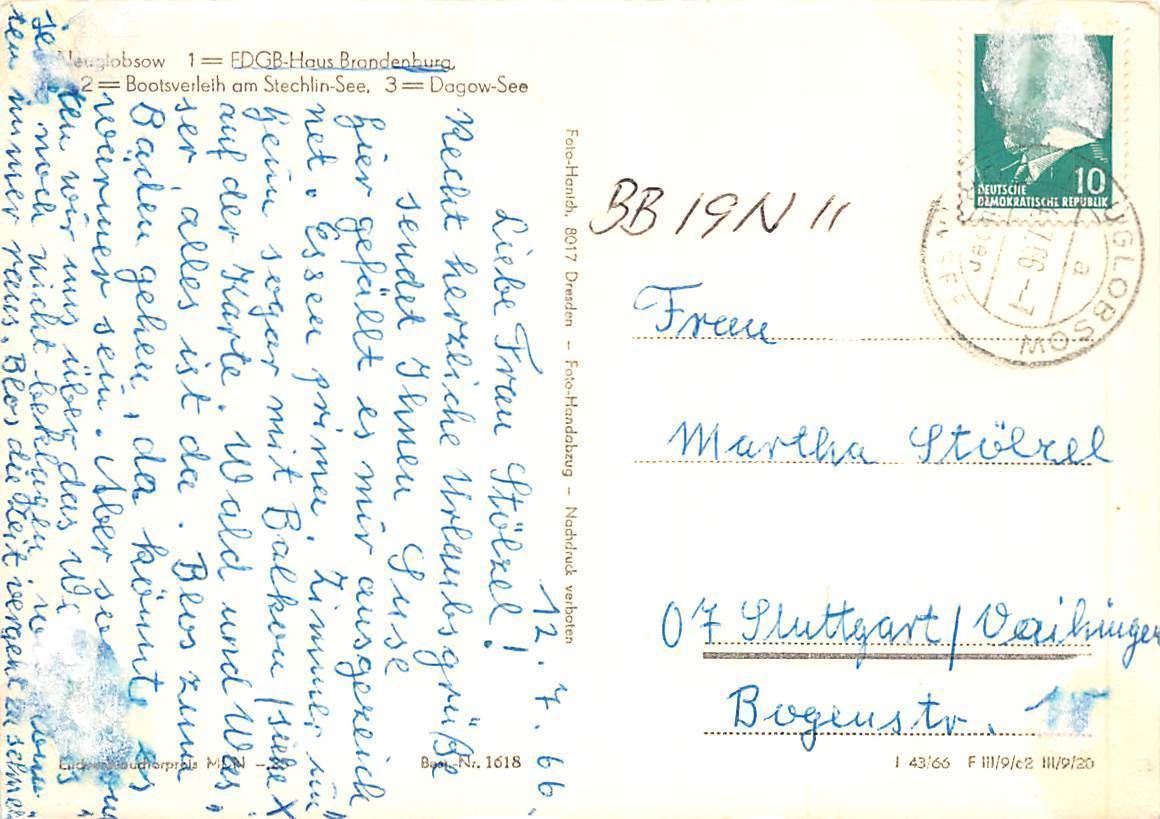 Neuglobsow 1 = FDGB-Haus Brandenburg,
2 = Bootsverleih am Stechlin-See, 3 = Dagow-See
12. 7. 66.
Liebe Frau Stölzel!
Recht herzliche Urlaubsgrüße
sendet Ihnen Suse
hier gefällt es mir ausgezeich
net. Essen prima. Zimmer im
Heim sogar mit Balkon (siehe X
auf der Karte. Wald und Was,
ser alles ist da. Blos zum
Baden gehen, da könnt es
wärmer sein. Aber so
ten wir uns über das We
noch nicht beklagen
immer raus. Blos die Zeit vergeht zu schnell
Foto-Hanich, 8017 Dresden – Foto-Handabzug – Nachdruck verboten
BB 19 N 11
DEUTSCHE
DEMOKRATISCHE REPUBLIK
10
NEUGLOBSOW
a
Frau
Martha Stölzel
07 Stuttgart/Vaihingen
Bogenstr.
Endverbraucherpreis MDN
Best.-Nr. 1618
I 43/66 F III/9/c2 III/9/20